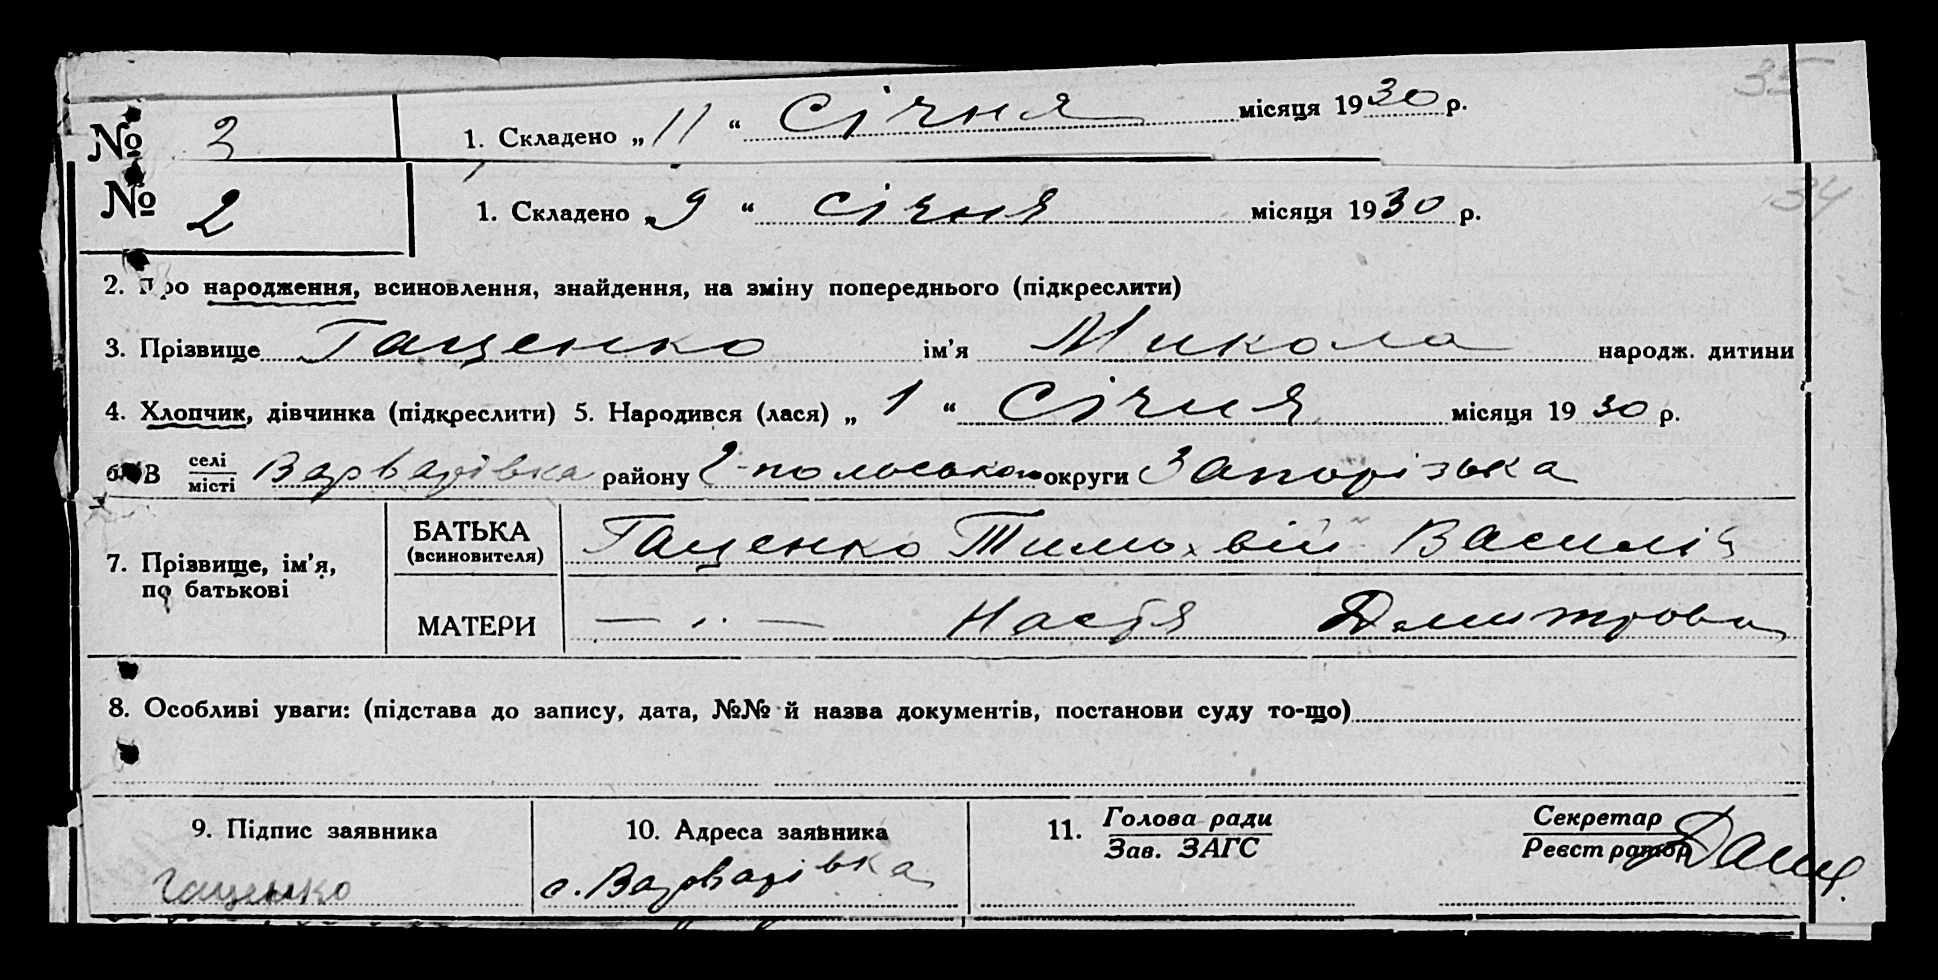 35
№ 2 1. Складено „11“ Січня місяця 1930 р.
34
№ 2 1. Складено „9“ січня місяця 1930 р.
2. Про народження, всиновлення, знайдення, на зміну попереднього (підкреслити)
3. Прізвище Гащенко ім'я Микола народж. дитини
4. Хлопчик, дівчинка (підкреслити) 5. Народився (лася) „1“ Січня місяця 1930 р.
6. В селі місті Варварівка району Г-польської округи Запорізька
7. Прізвище, ім'я, по батькові
БАТЬКА (всиновителя) Гащенко Тимохвій Василів
МАТЕРИ — „ — Настя Дмитрова
8. Особливі уваги: (підстава до запису, дата, №№ й назва документів, постанови суду то-що)
9. Підпис заявника 10. Адреса заявника 11. Голова ради Зав. ЗАГС Секретар Реєстратор
Гащенко с. Варварівка